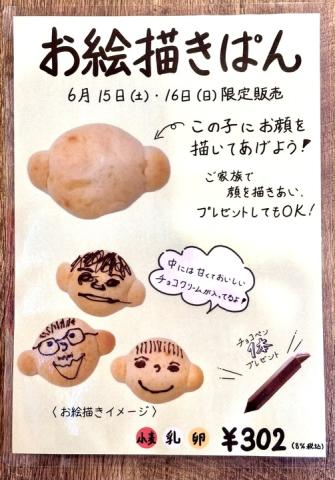 お絵描きぱん
6月15日(土)・16日(日)限定販売
この子にお顔を
描いてあげよう!
ご家族で
顔を描きあい、
プレゼントしてもOK!
中には甘くておいしい
チョコクリームが入ってるよ♪
チョコペン
1本
プレゼント
〈お絵描きイメージ〉
小麦 乳 卵 ¥302(8%税込)